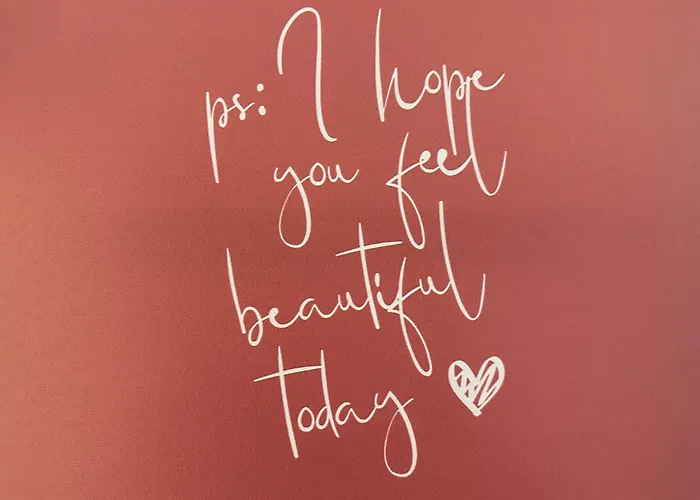 ps: I hope
you feel
beautiful
today